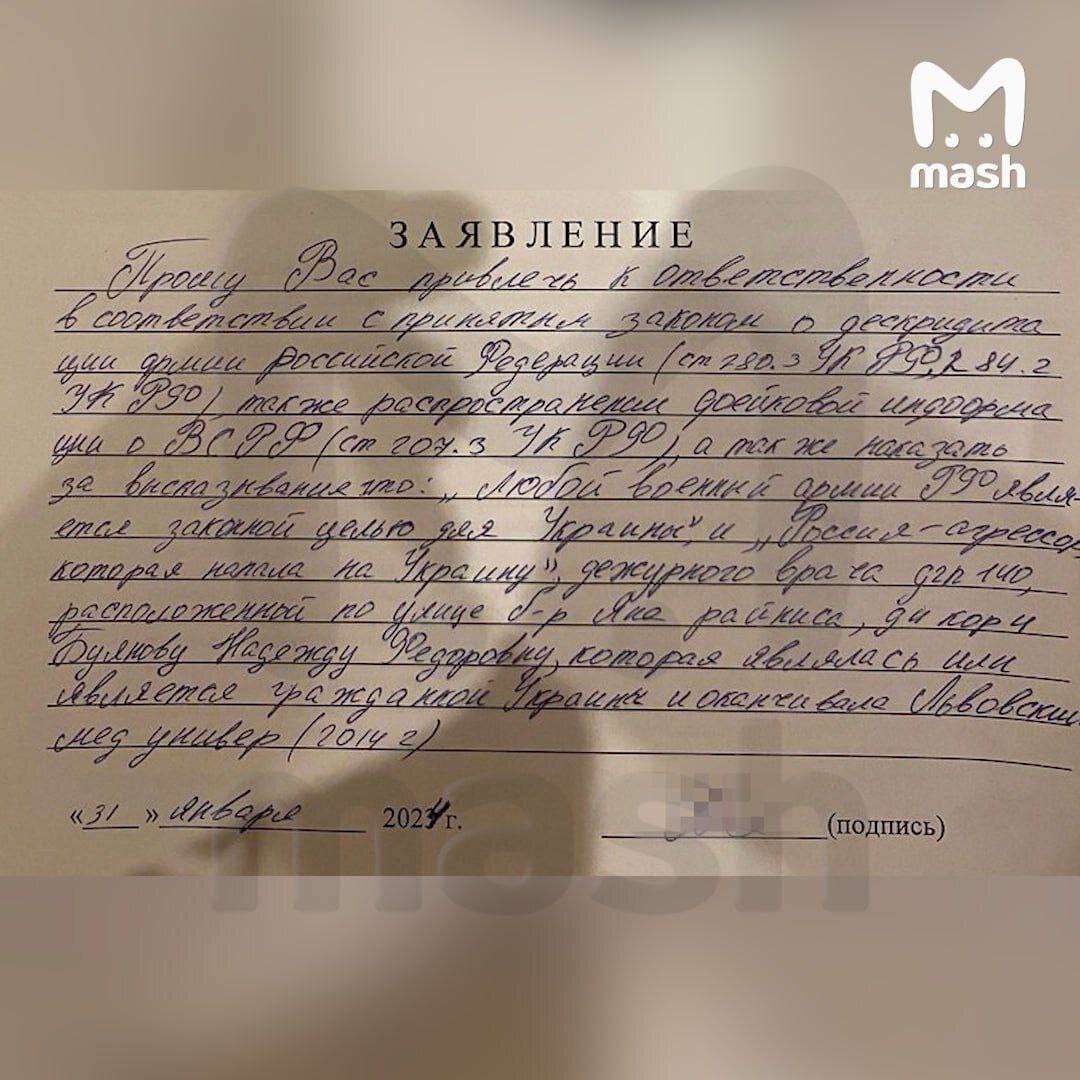 mash
ЗАЯВЛЕНИЕ
Прошу Вас привлечь к ответственности
в соответствии с принятым законом о дескридита
ции армии Российской Федерации (ст 280.3 УК РФ, 284.2
УК РФ), также распространении фейковой информа
ции о ВС РФ (ст 207.3 УК РФ), а так же наказать
за высказывание что: „Любой военный армии РФ явля-
ется законной целью для Украины" и „Россия-агрессор
которая напала на Украину", дежурного врача дгп 140,
расположенной по улице б-р Яна райниса,
Буянову Надежду Федоровну, которая являлась или
является гражданкой Украины и оканчивала Львовский
мед универ (2014 г)
«31» января 2024 г. (подпись)
mash